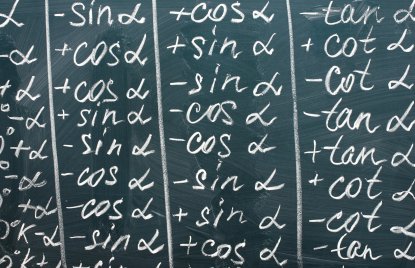 α -sin α +cos α -tan α
-α +cos α +sin α +cot α
α +cos α -sin α -cot α
°-α +sin α -cos α -tan α
°+α -sin α -cos α +tan α
°-α -cos α -sin α +cot α
°+α -cos α +sin α -cot α
°K-α -sin α +cos α -tan α
°K+α +sin α